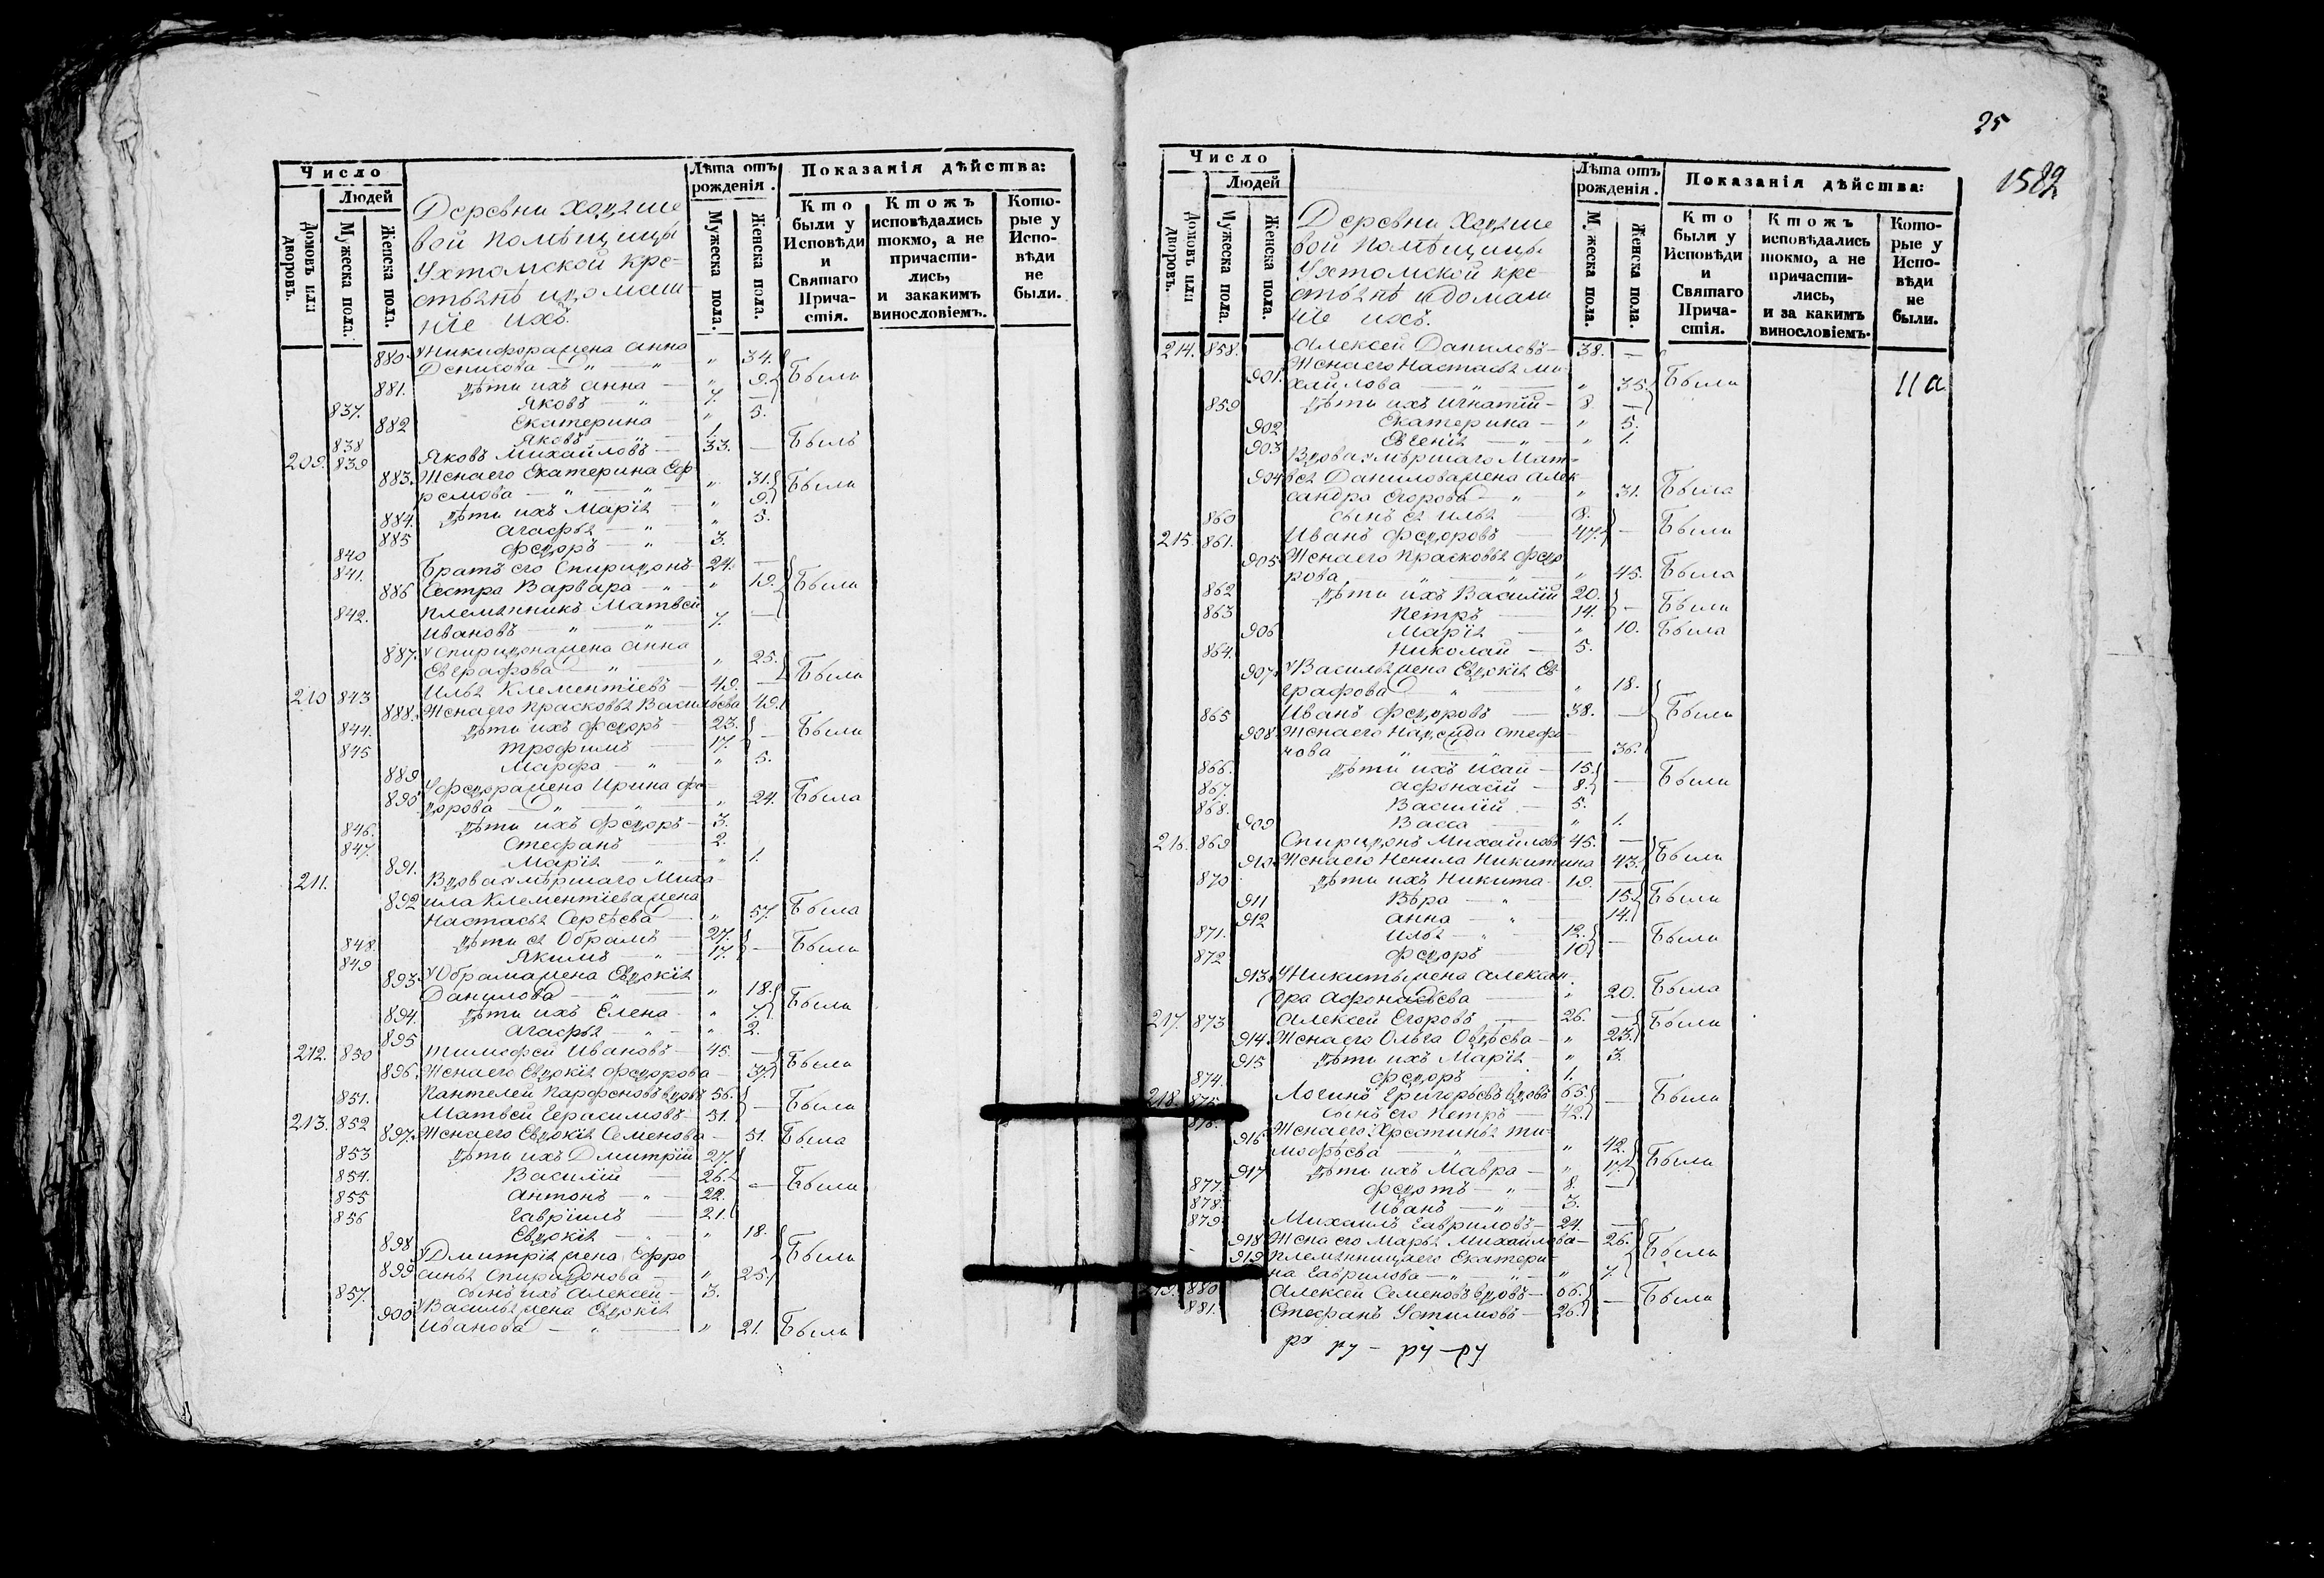 Число
Людей
Домовъ или дворовъ.
Мужеска пола.
Женска пола.
Деревни
вой помѣщицы
Ухтомской кре-
стьянѣ и домаш-
ніе ихъ.
Лѣта отъ рожденія.
Мужеска пола.
Женска пола.
Показанія дѣйства:
Кто были у Исповѣди и Святаго Прича-стія.
Ктожъ исповѣдались токмо, а не причасти-лись, и закакимъ винословіемъ.
Кото-рые у Испо-вѣди не были.
880 Никифора жена Анна
Денисова — „ — „ „ 34. Были
881. дѣти ихъ Анна — „ 9.
837. Яковъ — „ 7. —
882 Екатерина „ 5.
838 Яковъ — „ — 1.
209. 839 Яковъ Михайловъ — 33. — Былъ
883. Жена его Екатерина Еф
ремова — „ — „ „ 31. Были
884. дѣти ихъ Марія — „ 9.
885 Агафья — „ „ 5.
840 Федоръ — „ — 3.
841. Братъ его Спиридонъ 24. — Были
886 Сестра Варвара — „ „ 19.
842. племянникъ Матвей
Ивановъ — „ — „ 7. —
887. Спиридона жена Анна
Евграфова — „ „ 25. Были
210 843 Илья Клементіевъ — 49. —
888. Жена его Прасковья Васильева 49.
844. дѣти ихъ Федоръ — 23. — Были
845 Трофимъ — 17.
889 Марфа — „ — „ 5.
890 Федора жена Ирина Фе
дорова — „ — „ „ 24. Была
846. дѣти ихъ Федоръ — 3.
847. Стефанъ — 2.
891. Марія — „ „ 1.
211. Вдова умѣршаго Миха
892 ила Клементіева жена
Настасья Сергѣева — „ 57. Была
848. дѣти ея Обрамъ — 27. — Были
849 Якимъ — „ 17.
893. Обрама жена Евдокія
Данилова — „ — „ 18. Были
894. дѣти ихъ Елена „ 7.
895 Агафья — „ „ 2.
212. 850 Тимофей Ивановъ — 45. — Были
896. Жена его Евдокія Федорова — 37.
851. Пантелей Парфеновъ вдовъ 56. — Были
213. 852 Матвей Герасимовъ — 51.
897. Жена его Евдокія Семенова — 51. Была
853 дѣти ихъ Дмитрій 27. — Были
854. Василій — 26.
855 Антонъ — „ 22.
856 Гавріилъ — 21.
898 Евдокія — „ „ 18. Были
899 Дмитрія жена Ефро
синья Спиридонова — „ 25.
857. сынъ ихъ Алексей — 3.
900 Василья жена Евдокія
Иванова — „ — „ 21. Была
25
1582
Число
Людей
Домовъ или дворовъ.
Мужеска пола.
Женска пола.
Деревни
вой помѣщицы
Ухтомской кре-
стьянѣ и домаш
ніе ихъ.
Лѣта отъ рожденія.
Мужеска пола.
Женска пола.
Показанія дѣйства:
Кто были у Исповѣди и Святаго Прича-стія.
Ктожъ исповѣдались токмо, а не причасти-лись, и за какимъ винословіемъ.
Кото-рые у Испо-вѣди не были.
214. 858. Алексей Даниловъ — 38. — Были
901. Жена его Настасья Ми-
хайлова — „ — „ 35.
11а
859 дѣти ихъ Игнатій — 8 —
902 Екатерина — „ 5.
903 Евгенія — „ — „ 1.
Вдова умѣршаго Мат-
904 вея Данилова жена Алек
сандра Егорова — „ „ 31. Была
860 сынъ ея Илья — 8. — Были
215. 861. Иванъ Федоровъ — 47.
905 Жена его Прасковья Федо
рова — „ — „ „ 45. Была
862 дѣти ихъ Василій 20. — Были
863 Петръ — 14.
906 Марія — „ 10. Была
864. Николай — 5.
907. Василья жена Евдокія Ев
графова — „ „ 18. Были
865 Иванъ Федоровъ — 38. —
908. Жена его Надежда Стефа
нова „ „ — 36.
866. дѣти ихъ Исай — 15. — Были
867. Афонасій — 8.
868. Василій — 5.
909 Васса — „ 1.
216. 869 Спиридонъ Михайловъ 45. — Были
910. Жена его Ненила Никитина 43.
870 дѣти ихъ Никита 19. —
911 Вѣра — „ — 15. Были
912 Анна — „ — 14.
871. Илья — „ 12. — Были
872 Федоръ — 10.
913. Никиты жена Алексан
дра Афонасьева — „ 20. Была
217. 873 Алексей Егоровъ — 26. — Были
914. Жена его Ольга — „ 23.
915 дѣти ихъ Марія — „ 3.
874. Федоръ 1.
218. 875. Логинъ Григорьевъ вдовъ 65. — Были
876. сынъ его Петръ — 42.
916 Жена его Хрестинья Ти-
мофѣева — „ 42. Были
917 дѣти ихъ Мавра — „ 17.
877. Федотъ — „ 8. —
878. Иванъ — „ — 3.
879. Михаилъ Гавриловъ — 24. — Были
918 Жена его Марья Михайлова — 26.
919 племянница его Екатери-
на Гаврилова — „ — „ „ 7.
219. 880 Алексей Семеновъ вдовъ — 66. — Были
881. Стефанъ Устимовъ — 26.